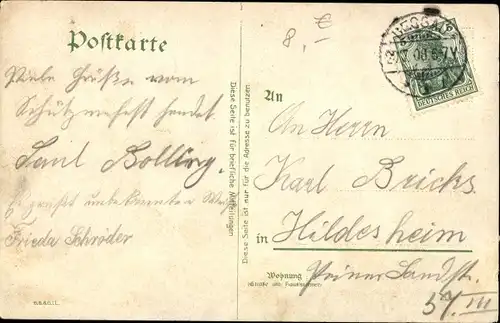 8,- €
Postkarte
Viele Grüße vom
Schützenfest sendet
Paul Bolling.
Es grüßt unbekannter Weise
Frieda Schröder
Diese Seite ist für briefliche Mitteilungen
Diese Seite ist nur für die Adresse zu benutzen
DEUTSCHES REICH
An
An Herrn
Karl
in Hildesheim
Wohnung
(Straße und Hausnummer)
Peiner Landstr.
54. III